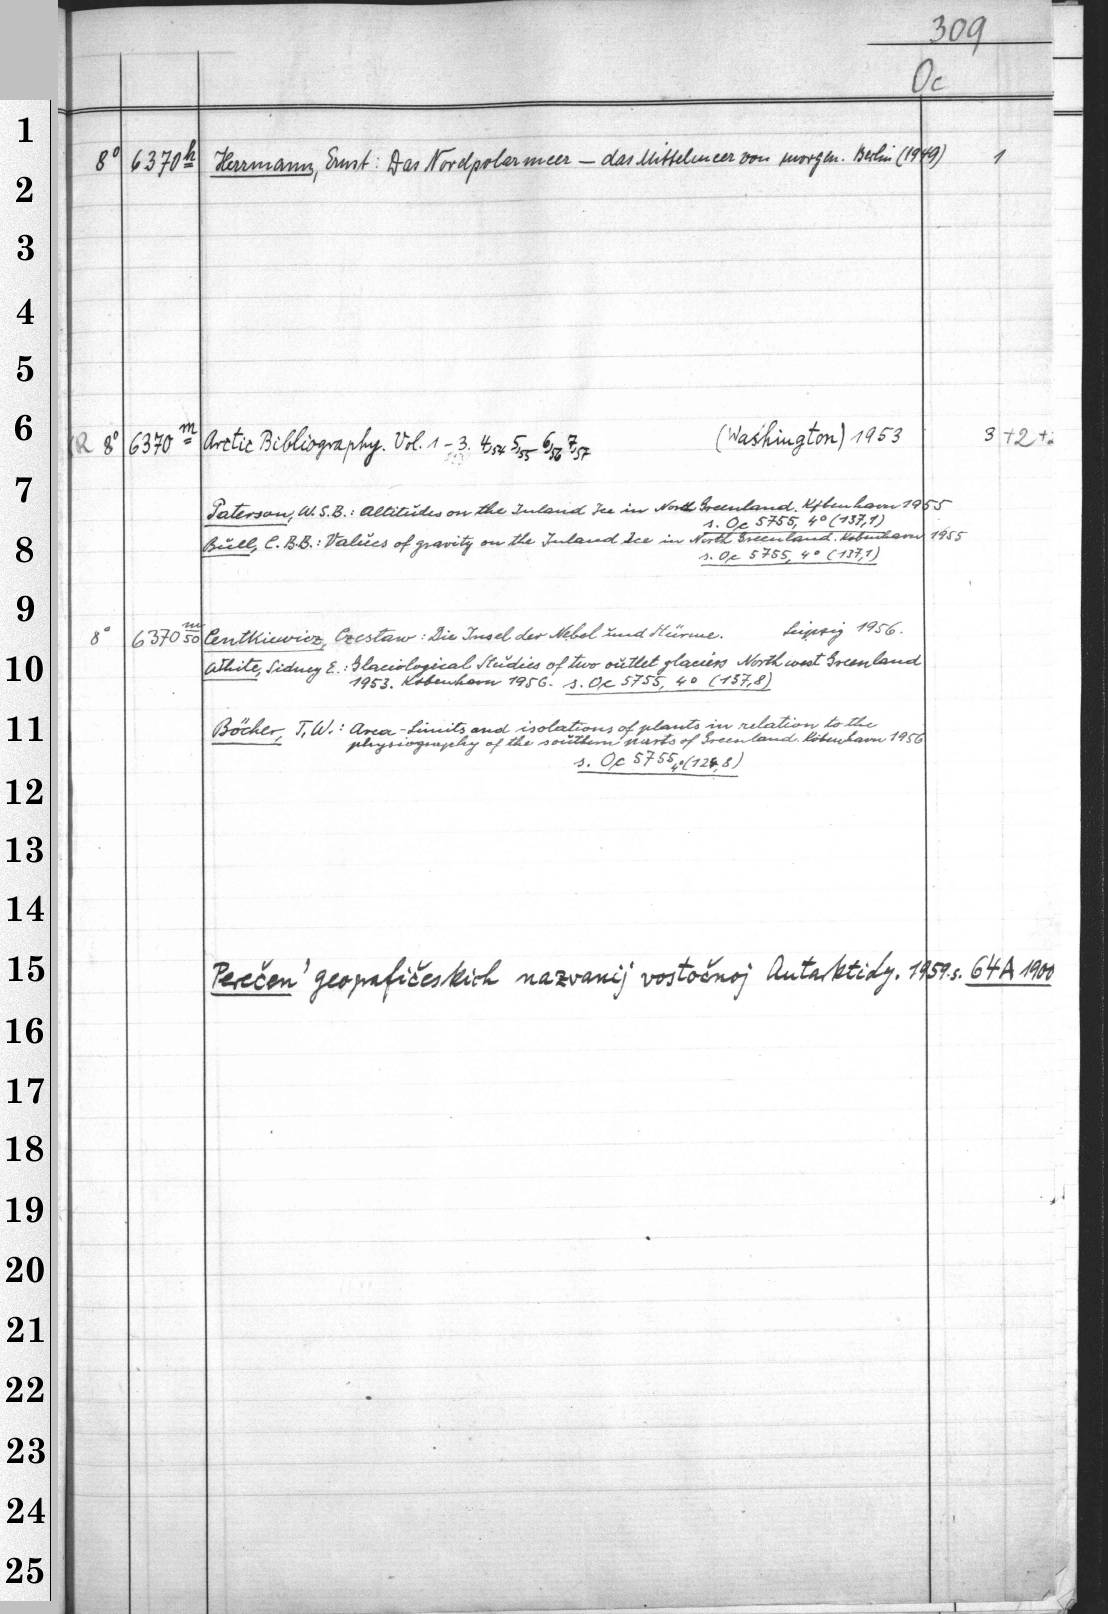 309
Oc
1
8° 6370h Herrmann, Ernst: Das Nordpolarmeer — das Mittelmeer von morgen. Berlin (1949) 1
2
3
4
5
6
R 8° 6370m Arctic Bibliography. Vol. 1-3. 4/54 5/55 6/56 7/57 (Washington) 1953 3 +2 +
7
Paterson, W.S.B.: Altitudes on the Inland Ice in North Greenland. København 1955
s. Oc 5755, 4° (137,1)
8
Bull, C.B.B.: Values of gravity on the Inland Ice in North Greenland. København 1955
s. Oc 5755, 4° (137,1)
9
8° 6370m/50 Centkiewicz, Czesław: Die Insel der Nebel und Stürme. Leipzig 1956.
10
White, Sidney E.: Glaciological Studies of two outlet glaciers Northwest Greenland
1953. København 1956. s. Oc 5755, 4° (137,8)
11
Böcher, T.W.: Area-Limits and isolations of plants in relation to the
physiography of the southern parts of Greenland. København 1956
s. Oc 5755, 4° (124,8)
12
13
14
15
Perečen' geografičeskich nazvanij vostočnoj Antarktidy. 1959. s. 64 A 1900
16
17
18
19
20
21
22
23
24
25